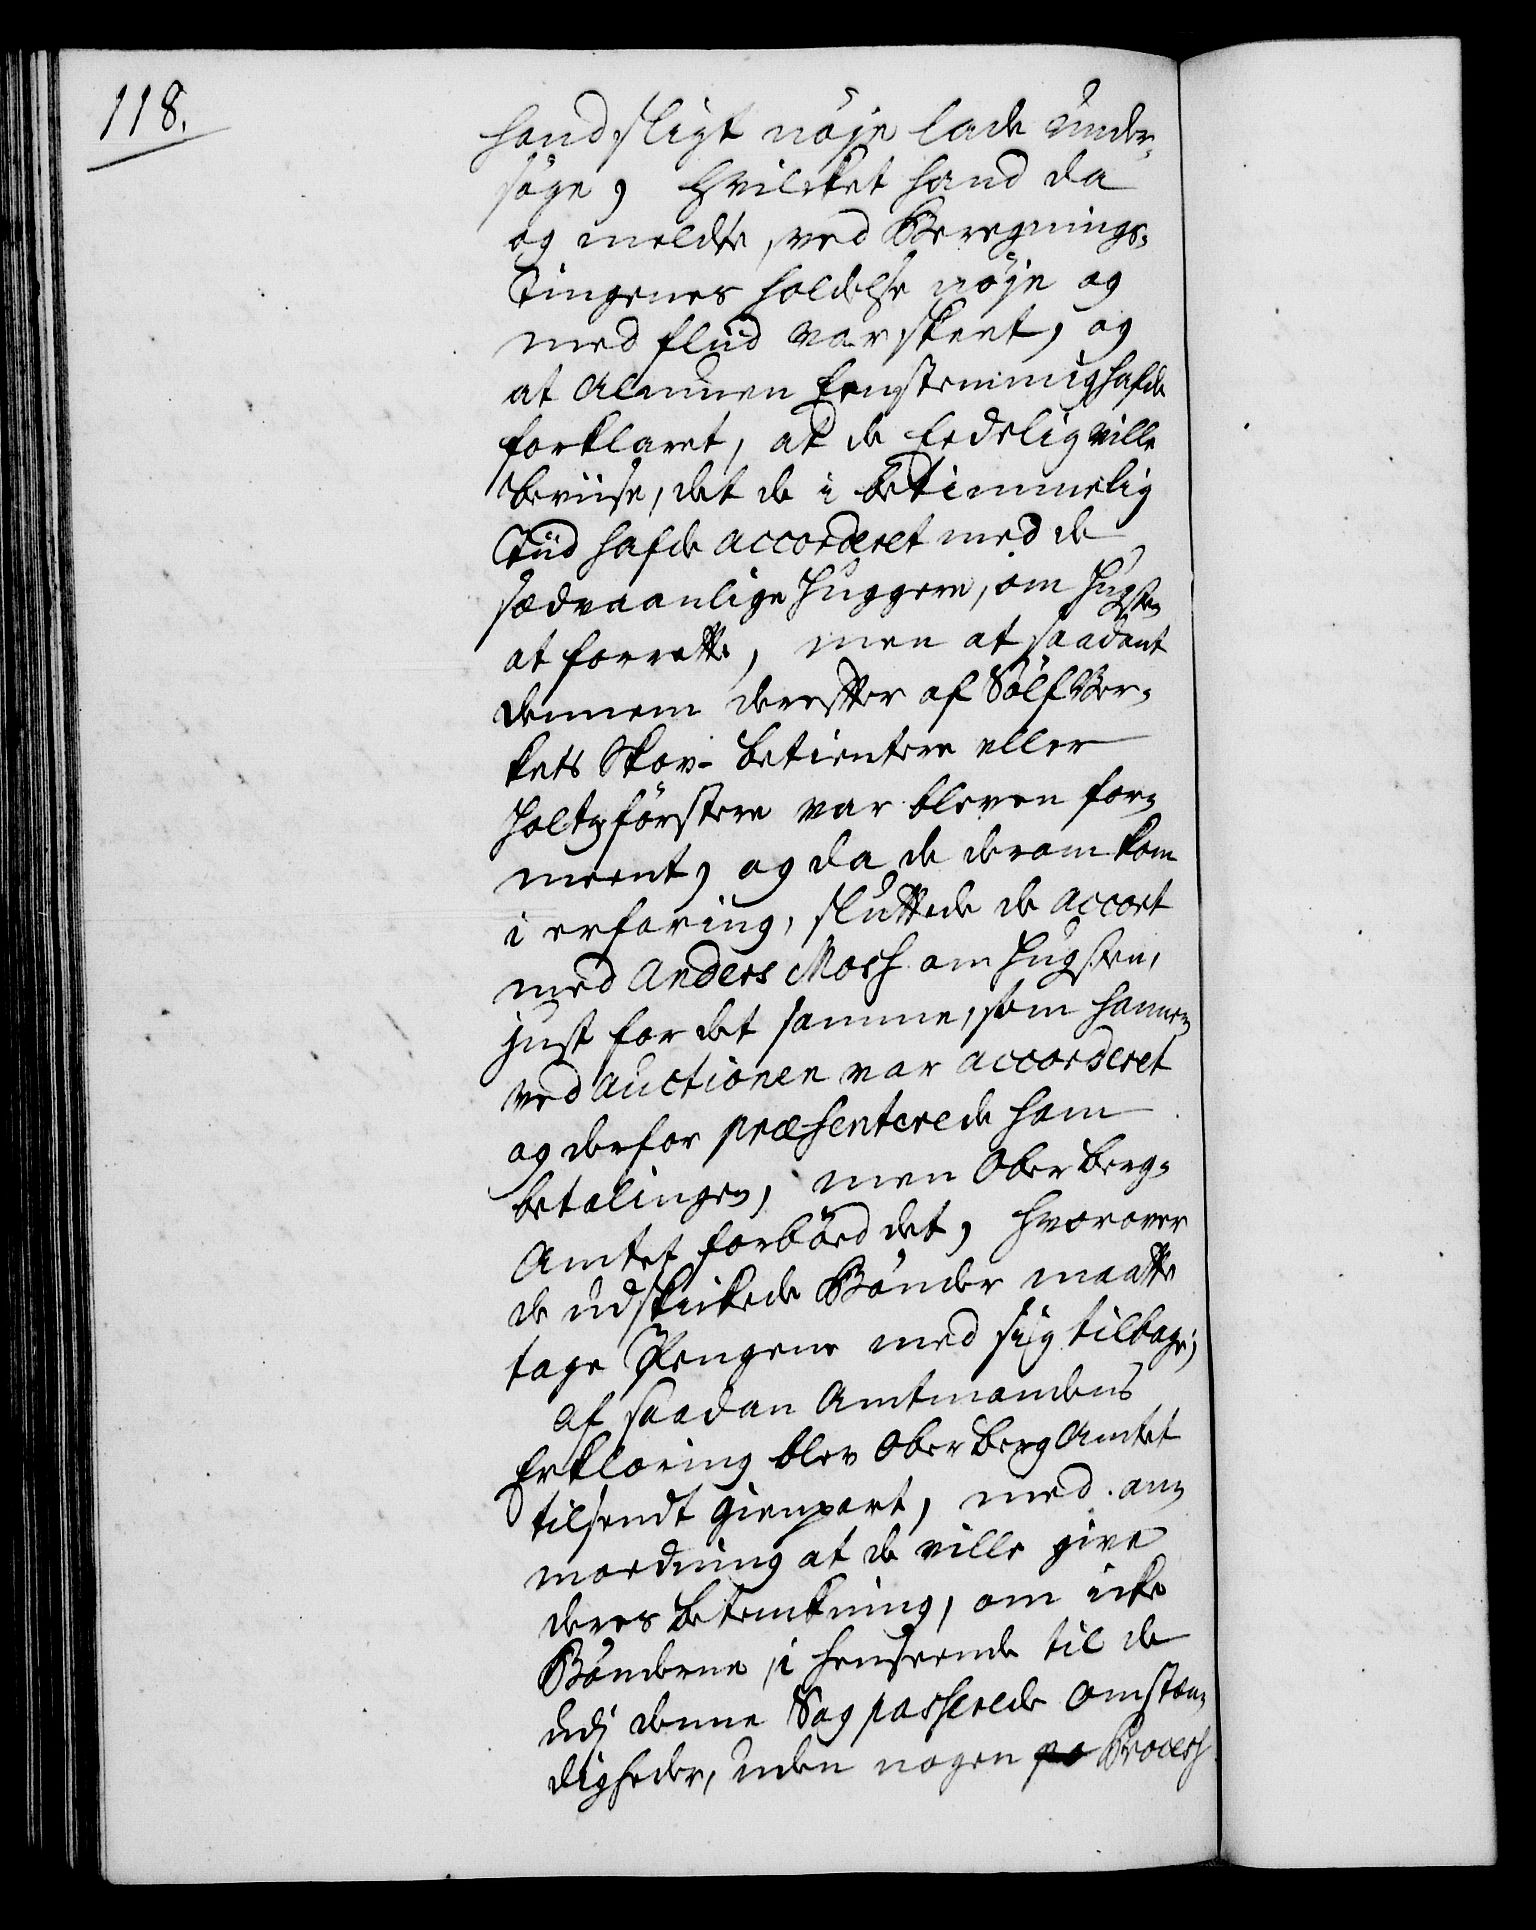 118.
hand sligt nöje lade under-
söge, hvilcket hand da
og meldte, ved Beregnings-
Tingenes holdelse nöje og
med fliid var skeet, og
at Almuen Eenstemmig hafde
forklaret, at de Eedelig ville
beviise, det de i betimmelig
Tiid hafde accorderet med de
sædvaanlige Huggere, om Hugsten
at forrette, men at saadant
dennem derefter af Sölf Ver-
kets Skov-betientere eller
Holtzförstere var bleven for-
meent, og da de derom kom
i erfaring, sluttede de accort
med Anders Mosh om Hugsten,
just for det samme, som hannem
ved Auctionen var accorderet
og derfor præsenterede ham
betalingen, men Ober berg-
Amtet forböed det, hvorover
de udskikede Bönder maatte
tage Pengene med sig tilbage;
Af saadan Amtmandens
Erklæring blev Ober Berg Amtet
tilsendt Gienpart, med an-
mordning at de ville give
deres betenkning, om icke
Bönderne, i henseende til de
udj denne Sag passerede omstæn-
digheder, uden nogen Process